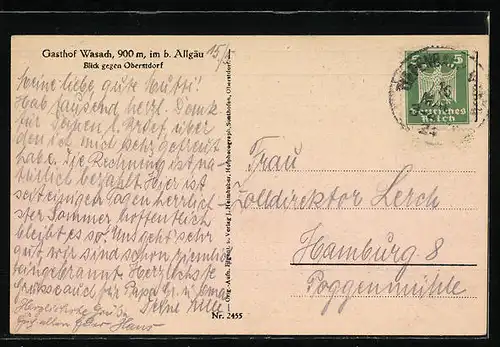 Gasthof Wasach, 900 m, im b. Allgäu
Blick gegen Oberstdorf
15/
Meine liebe gute Mutti!
Hab tausend herzl. Dank
für Deinen l. Brief über
den ich mich sehr gefreut
habe. Die Rechnung ist na-
türlich bezahlt. Hier ist
seit einigen Tagen herrlich-
ster Sommer hoffentlich
bleibt es so. Uns geht's sehr
gut, wir sind schon ziemlich
eingebrannt. Herzlichste
Grüsse auch für Papa
Deine
Herzlichste Grüße
Hans
Orig.-Aufn. Eigent. u. Verlag J. Heimhuber, Hofphotograph, Sonthofen, Oberstdorf
Nr. 2455
5 5
Deutsches
Reich
Frau
Zolldirektor Lerch
Hamburg 8
Poggenmühle